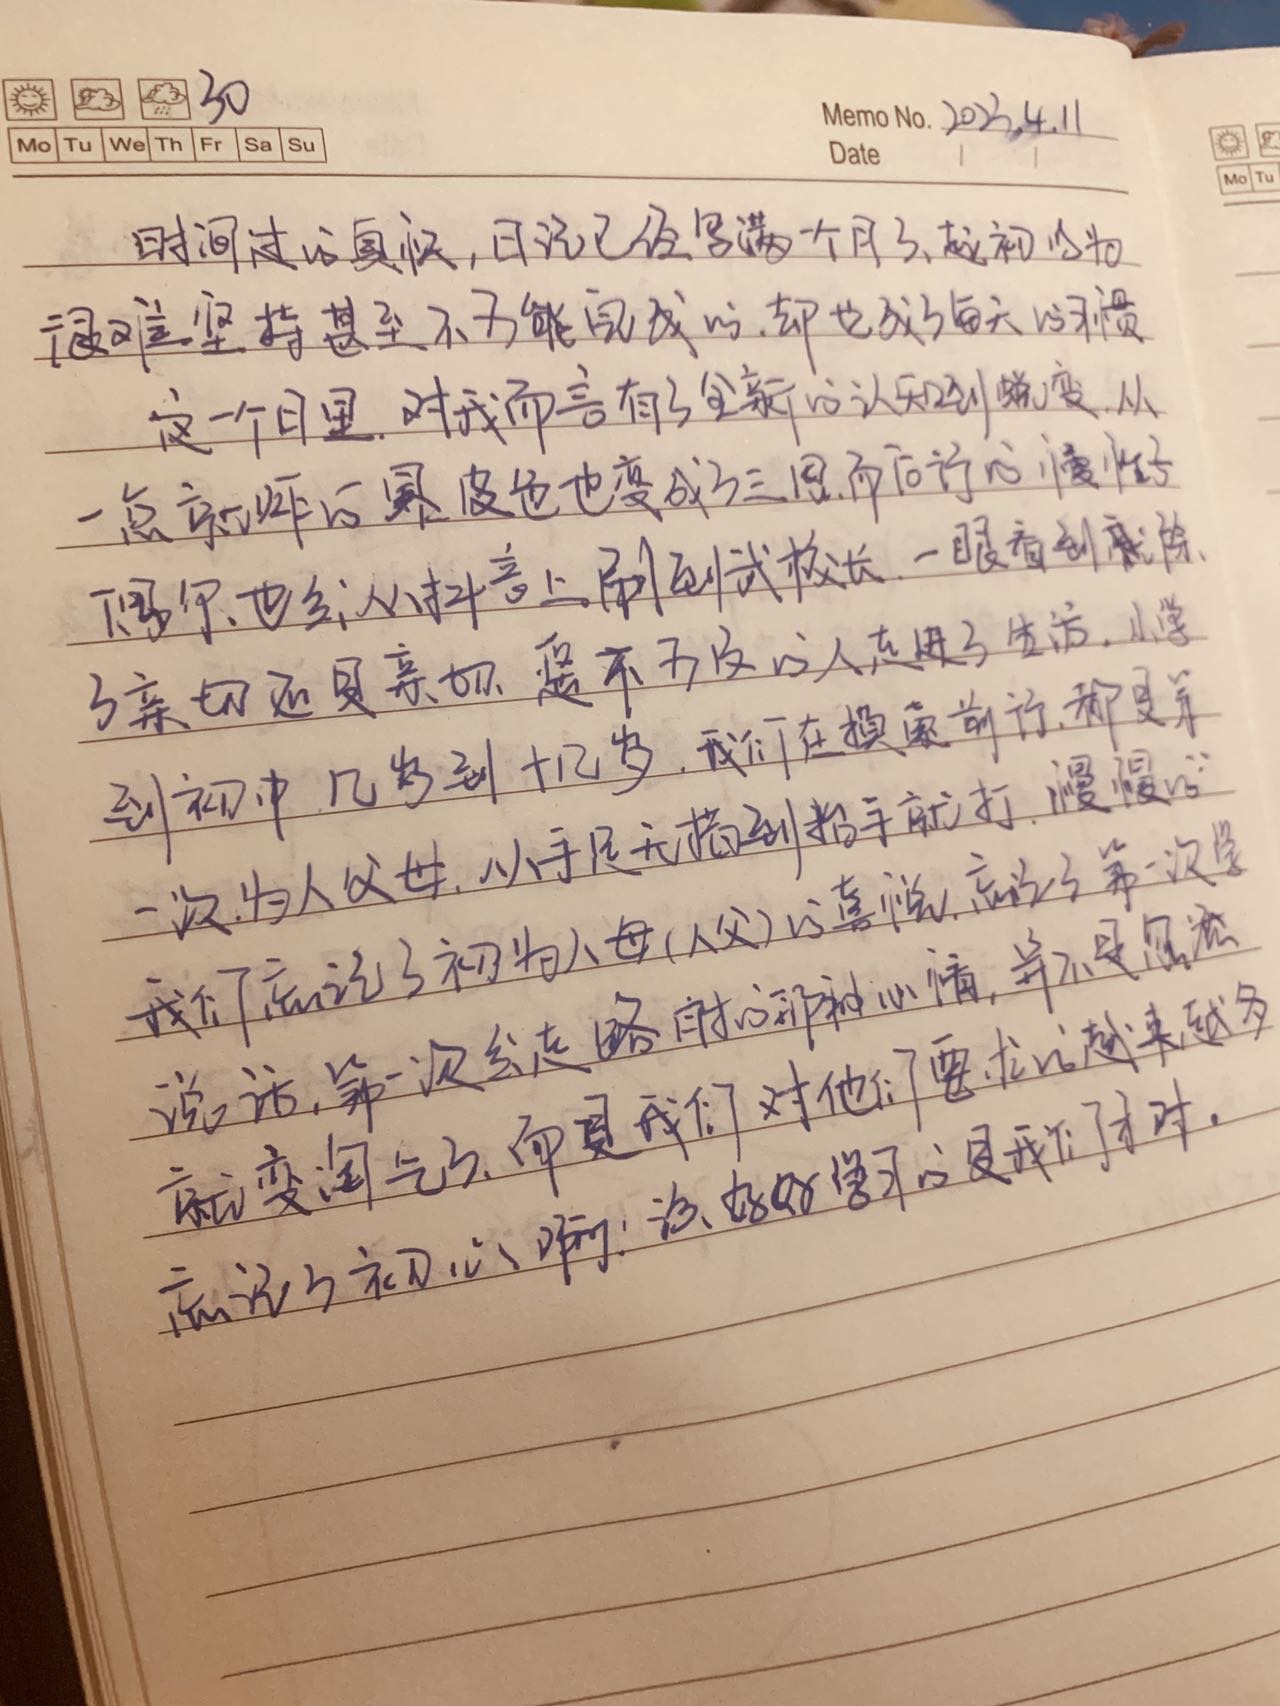 30
Memo No. 2023.4.11
Mo Tu We Th Fr Sa Su
Date
Mo Tu
时间过的真快,日记已经写满一个月了、起初以为
很难坚持甚至不可能完成的.却也成了每天的习惯
这一个月里.对我而言有了全新的认知到蜕变.从
一点就炸的 皮色也变成了三思而后行的慢性子
偶尔、也会从抖音上刷到武校长.一眼看到就除
了亲切还是亲切. 不可及的人走进了生活.小学
到初中 几岁到十几岁.我们在摸索前行.都是第
一次.为人父母.从手足无措到抬手就打.慢慢的
我们忘记了初为人母(人父)的喜悦.忘记了第一次学
说话.第一次会走路时的那种心情,并不是孩子
就变淘气了、而是我们对他们要求的越来越多
忘记了初心、啊!该、好好学习的是我们才对.